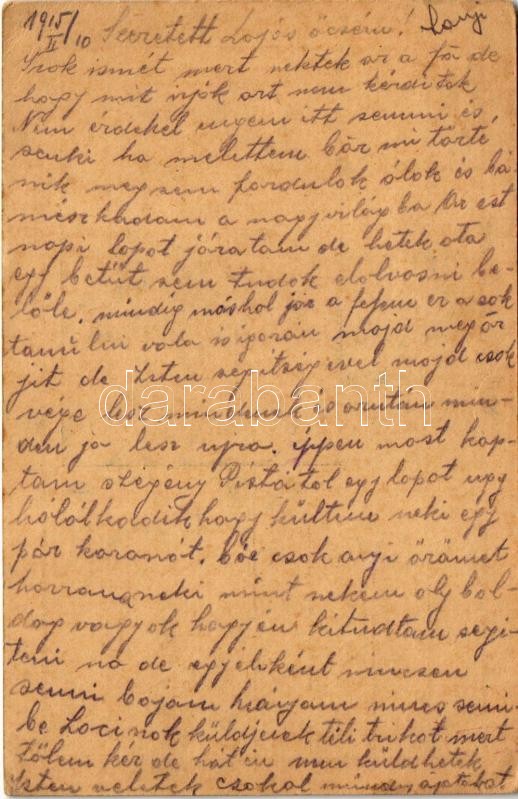 1915/II/10 Szeretett Lajos öcsém! Lavji
Irok ismét mert nektek az a fő de
hogy mit irjok azt nem kérditek
Nem érdekel engem itt semmi és
senki ha melettem bár mi törté
nik meg sem fordulok ólok és bá-
mészkodom a nagy világba Az est
napi lopot járatam de hetek ota
egy betüt sem tudok elolvosni be-
löle. mindig máshol jár a fejem ez a sok
majd megőr
jit de Isten segitségével majd csok
vége lesz mindenek és azután min-
den jo lesz ujra. éppen most kap-
tam szegény Pistátol egy lopot ugy
hólálkodik hogy kültem neki egy
pár koronát. csok anyi örömet
neki mint nekem oly bol-
dog vagyok hogy én kitudtam segi-
teni na de egyébként nincsen
semmi bojom hiányom nincs semi-
be Locinok küldjenek téli trikot mert
tőlem kér de hát én nem küldhetek
Isten veletek csokol mindnyájatokat
darabanth